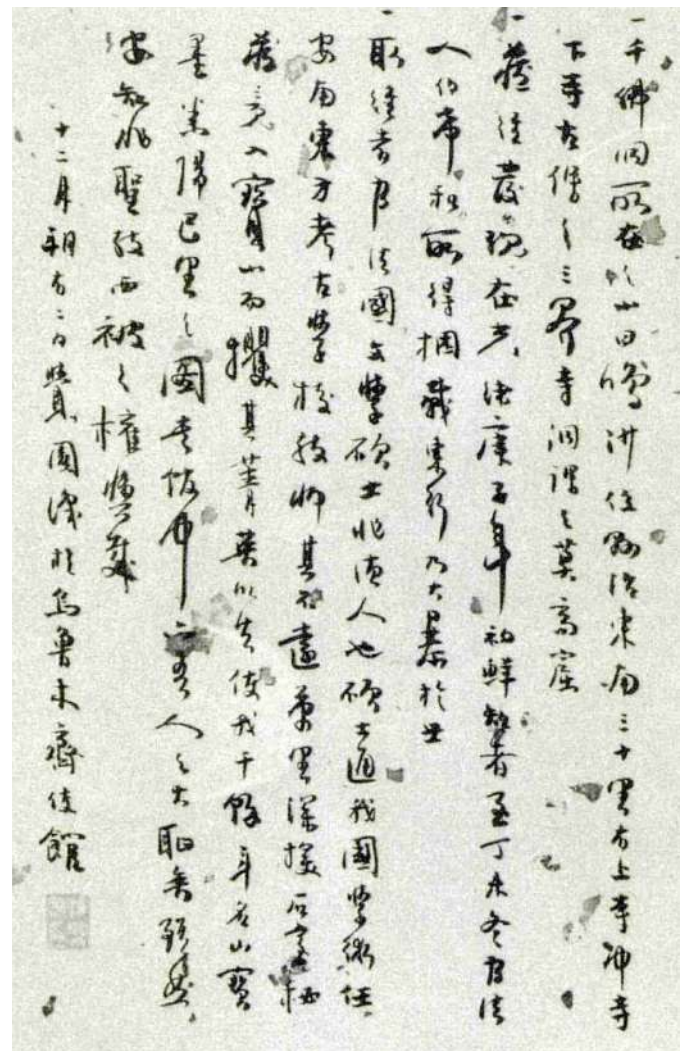 一千佛洞所在之山曰鳴沙位縣治東南三十里有上寺中寺
下寺古僧之三界寺洞謂之莫高窟
一藏經發現在光緒庚子年初鮮知者至丁未冬有法
人伯希和所得捆載東行乃大暴於世
一取經者有法國文學碩士非德人也碩士通我國學術任
安南東方考古學校教師其不遠萬里深探石室秘
藏竟入寶山而攫其菁英以去使我千餘年名山寶
墨米陽巴里之圖書館中吾人之大恥矣
安知非聖教西被之權輿哉
十二月朔有二日贊圖識於烏魯木齊使館